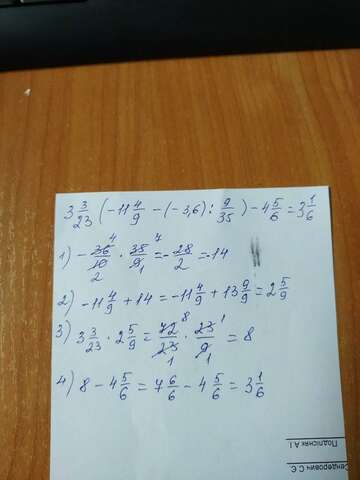 3 3/23 (-11 4/9 - (-3,6) : 9/35) - 4 5/6 = 3 1/6
1) - 36/10 · 35/9 = - 28/2 = -14
2) -11 4/9 + 14 = -11 4/9 + 13 9/9 = 2 5/9
3) 3 3/23 · 2 5/9 = 72/23 · 23/9 = 8
4) 8 - 4 5/6 = 7 6/6 - 4 5/6 = 3 1/6
Подлісняк А.І.
Сендерович С.Є.